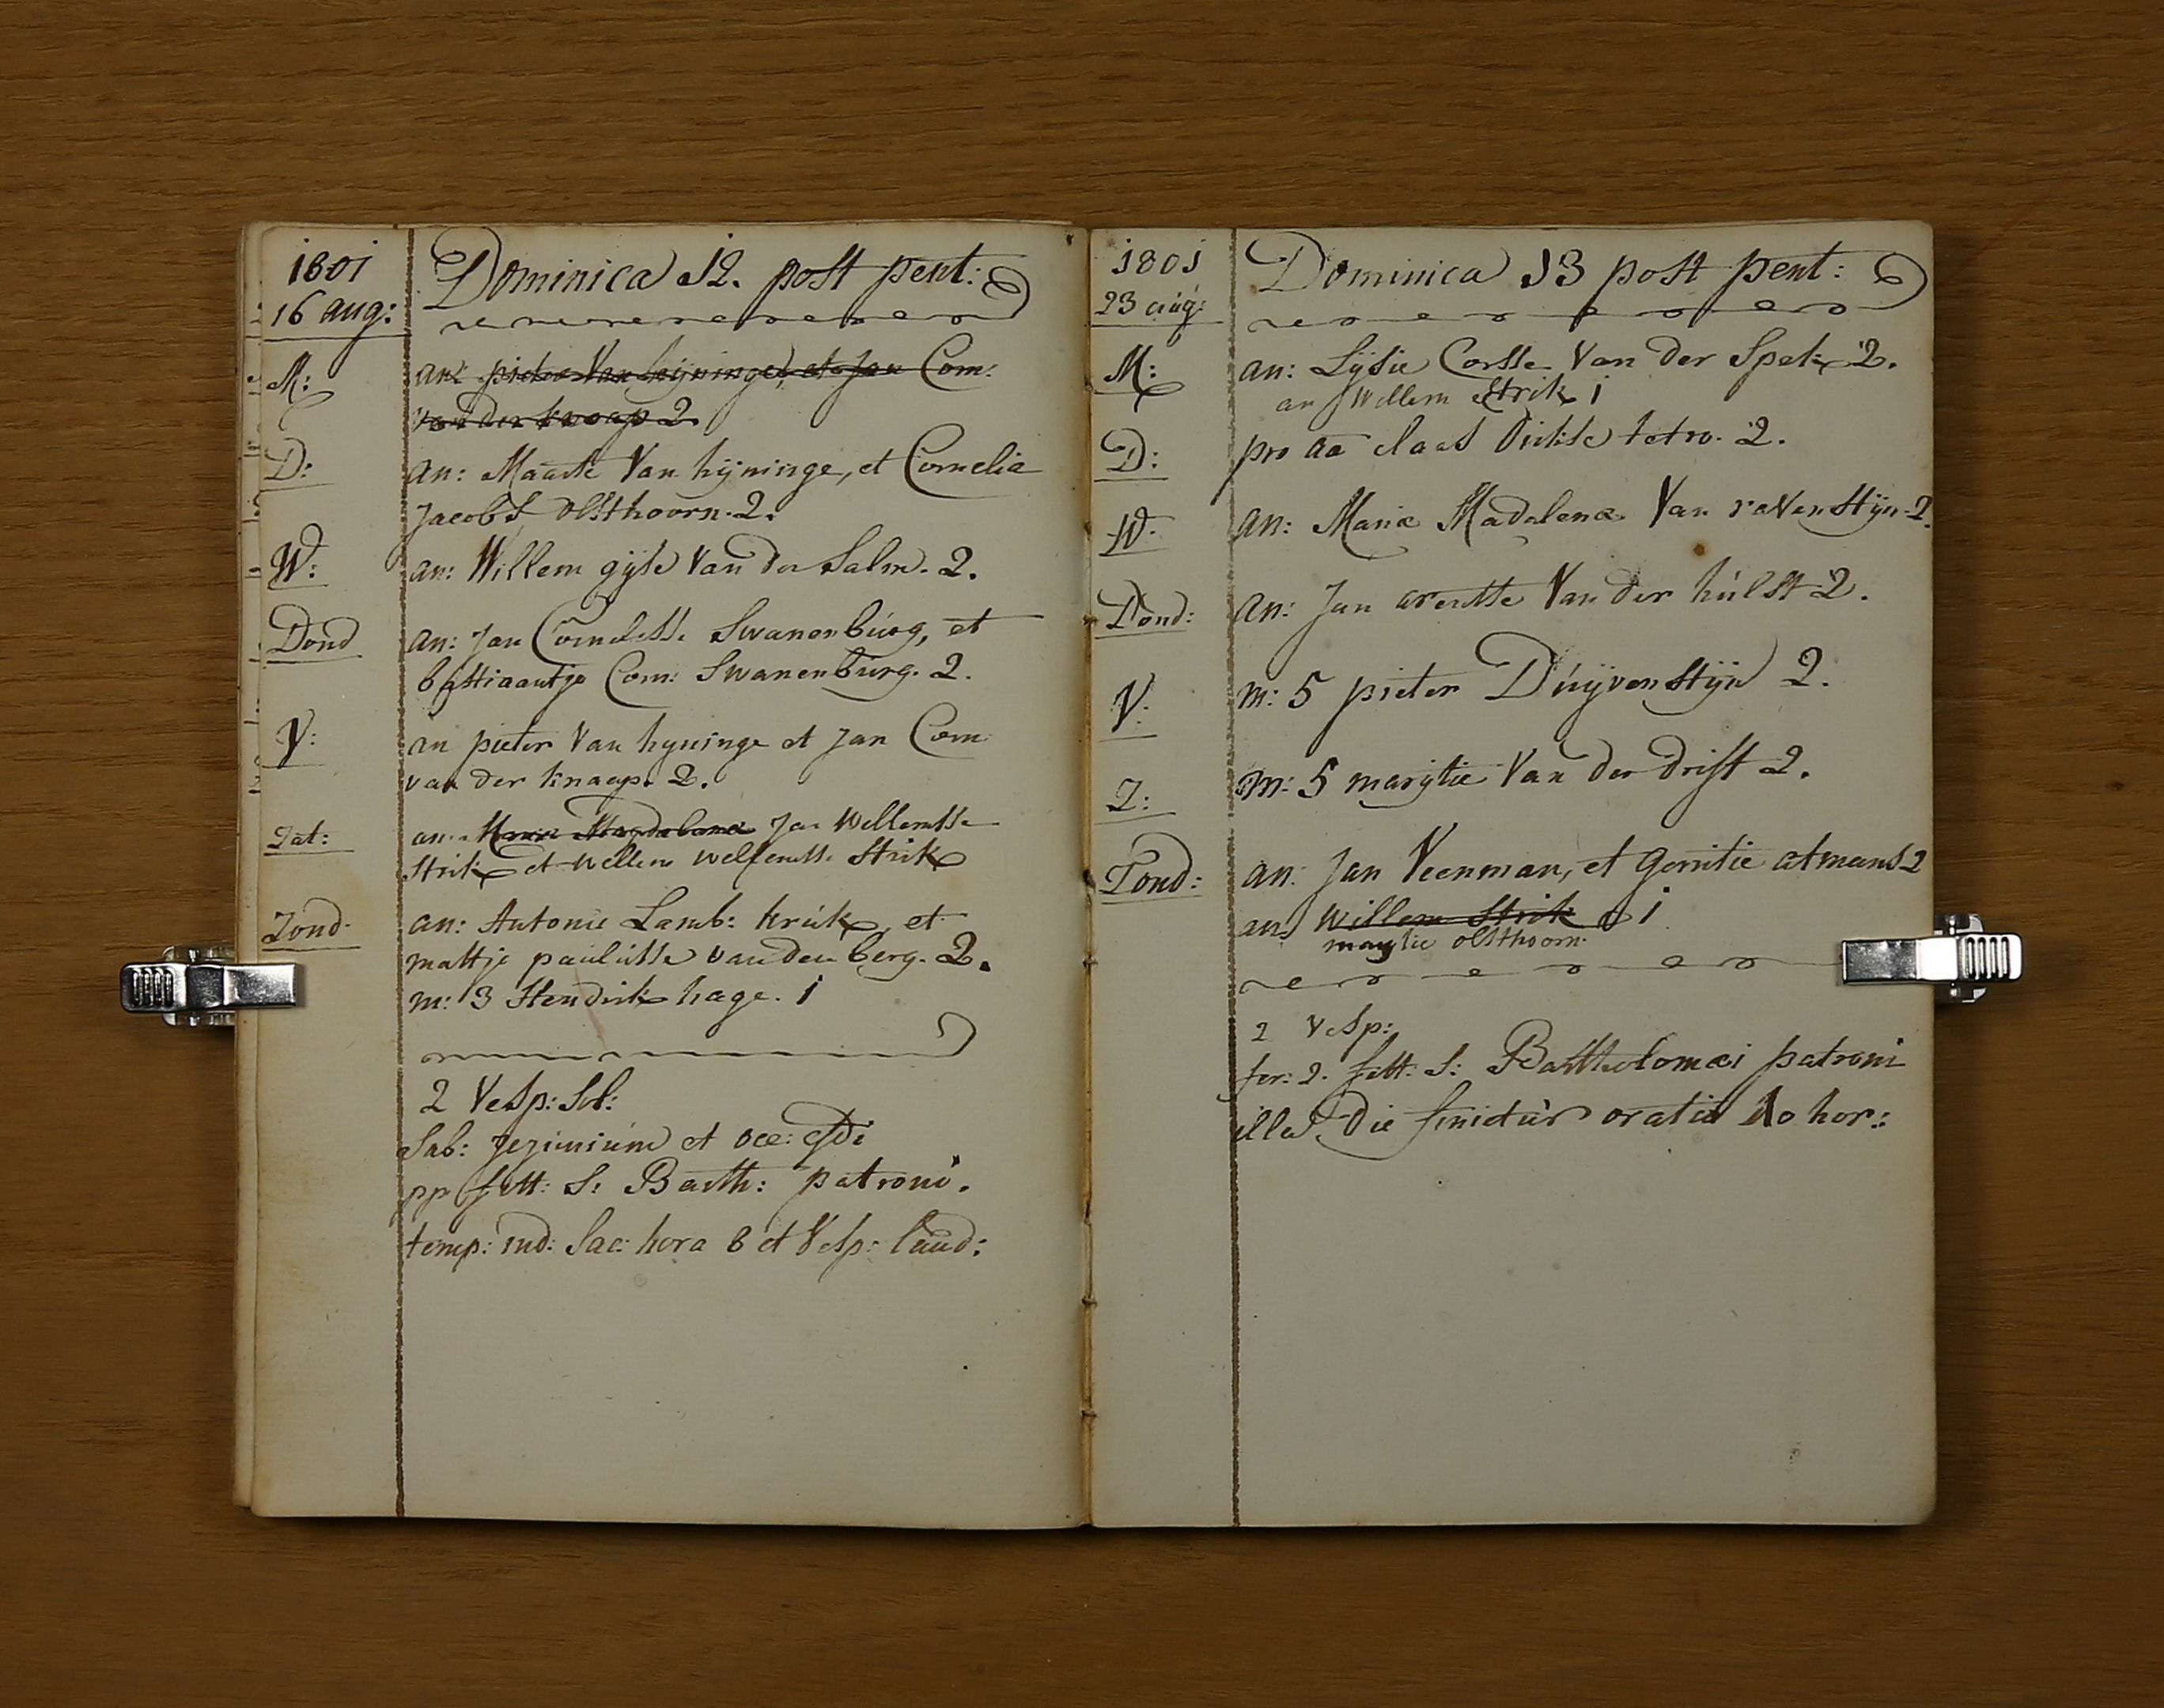 1801
16 aug:
Dominica 12. post pent:
M:
an: pieter Van heijninge, et Jan Corn:
van der knaap 2.
D:
an: Maarte Van hijninge, et Cornelia
Jacobs olsthoorn. 2.
W:
an: Willem gijse Van der Salm. 2.
Dond
an: Jan Cornelisse Swanenburg, et
bastiaantje Corn: Swanenburg. 2.
V:
an pieter Van hyninge et Jan Corn
van der knaap. 2.
Zat:
an: Maria Magdalena Jan Willemsse
Strik et willem willemsse Strik
Zond.
an: Antonie Lamb: kruk, et
mattje paulusse van den berg. 2.
m: 3 Hendrik hage. 1
2 Vesp: Sol:
Sab: jejunium et
pp fest: S: Barth: patroni.
temp: ind: Sac: hora 6 et Vesp: laud:
1801
23 aug:
Dominica 13 post pent:
M:
an: Lijsie Corsse Van der Spek 2.
an Willem Strik 1
D:
pro aa claas Dirkse 2.
W:
an: Maria Madalena Van raven Stijn. 2.
Dond:
an: Jan arentse Van der hulst 2.
V:
m: 5 pieter Duijven Stijn 2.
Z:
m: 5 marijtie Van der drift 2.
Zond:
an: Jan Veenman, et gerritie atmans 2
an Willem Strik 1
marytie olsthoorn.
2 Vesp:
fer: 2. fest: S: Bartholomæi patroni
illa Die finitur oratio 10 hor::